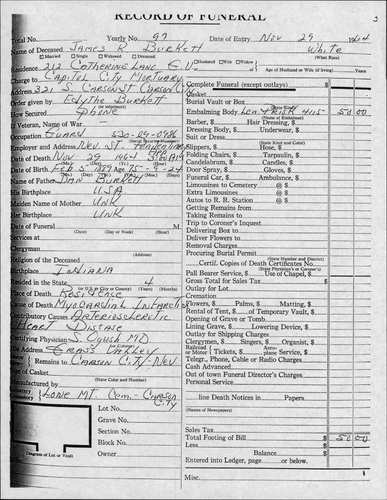 RECORD OF FUNERAL
Total No. Yearly No. 97 Date of Entry Nov 29 1964
Name of Deceased James R. Burkett White
Married Single Widowed Divorced (What Race)
Residence 212 Catherine Lane G.V. Husband Wife Widow
of Age of Husband or Wife (if living)
Charge to Capitol City Mortuary
Address 321 S. Carson St Carson C
Order given by Edythe Burkett
How Secured Phone
If Veteran, Name of War -
Occupation Guard 530-09-0986
Employer and Address Nev. St.
Date of Death Nov 29 1964
Date of Birth Feb 5 1889 Age 75-9-24
Name of Father Dan Burkett
His Birthplace USA
Maiden Name of Mother Unk
Her Birthplace Unk
Date of Funeral M.
Services at
(Address)
Clergyman
Religion of the Deceased
Birthplace Indiana
Resided in the State 4
(or U.S. or City or County) (Years) (Months)
Place of Death Residence
Cause of Death Myocardial Infarction
Contributory Causes Arteriosclerotic
Heart Disease
Certifying Physician S. Oguda MD
His Address Grass Valley
Remains to Carson City - Nev
Size of Casket
(State Color and Number)
Manufactured by
Lone Mt Cem - Carson
City
Lot No.
Grave No.
Section No.
Block No.
Owner
Diagram of Lot or Vault
Complete Funeral (except outlays) $
Casket
Burial Vault or Box
(State Kind)
Embalming Body 4115 50 00
(Name of Embalmer)
Barber, $ Hair Dressing, $
Dressing Body, $ Underwear, $
Suit or Dress
(State Kind and Color)
Slippers, $ Hose, $
Folding Chairs, $ Tarpaulin, $
Candelabrum, $ Candles, $
Door Spray, $ Gloves, $
Funeral Car, $ Ambulance, $
Limousines to Cemetery @ $
Extra Limousines @ $
Autos to R. R. Station @ $
Getting Remains from
Taking Remains to
Trip to Coroner's Inquest
Delivering Box to
Deliver Flowers to
Removal Charges
Procuring Burial Permit
(State Number and District)
Certif. Copies of Death Certificates No.
(State Physician's or Coroner's)
Pall Bearer Service, $ Use of Chapel, $
Gross Total for Sales Tax $
Outlay for Lot
Cremation
Flowers, $ Palms, $ Matting, $
Rental of Tent, $ of Temporary Vault, $
Opening of Grave or Tomb
Lining Grave, $ Lowering Device, $
Outlay for Shipping Charges
Clergymen, $ Singers, $ Organist, $
Railroad or Motor Tickets, $ Aeroplane Service, $
Telgr., Phone, Cable or Radio Charges
Cash Advanced
Out of town Funeral Director's Charges
Personal Service
line Death Notices in Papers
(Names of Newspapers)
Sales Tax
Total Footing of Bill $ 50 00
Less
Balance $
Entered into Ledger, page or below.
Misc.